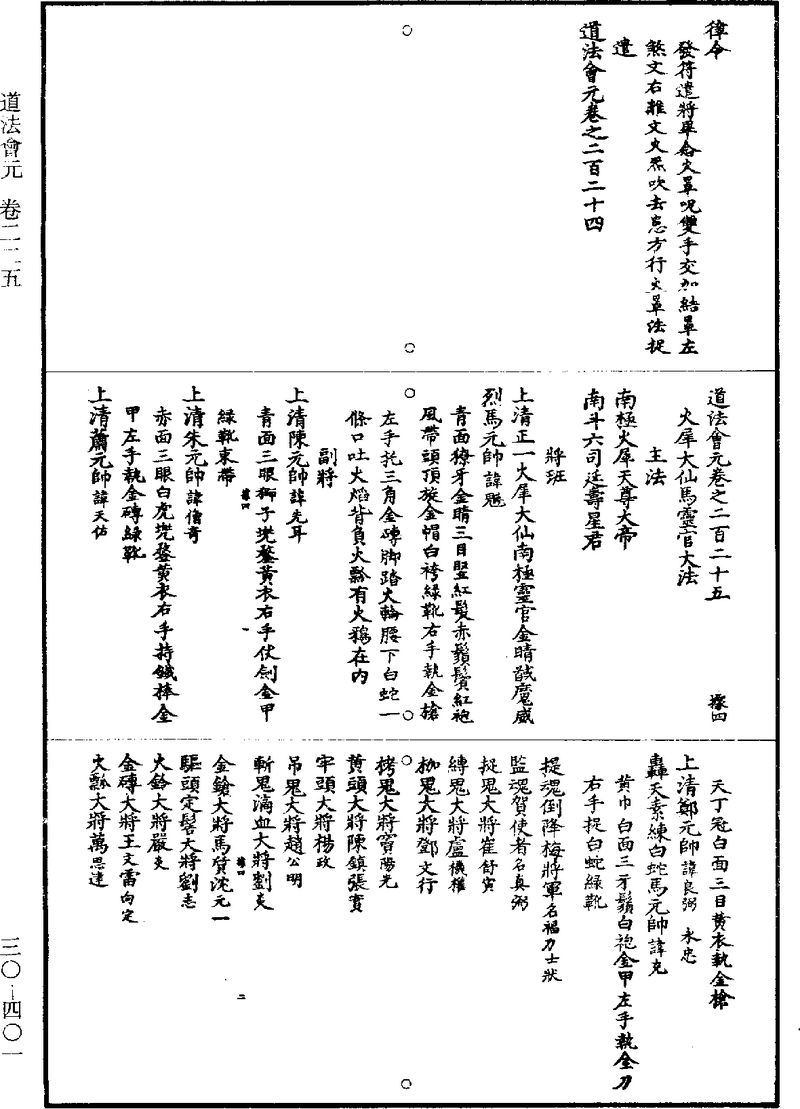 道法會元 卷二二五
三〇-四〇一
律令
發符遣將畢念火罩呪雙手交加結罩左
煞文右雞文火炁吹去患方行火罩法捉
遣
道法會元卷之二百二十四
道法會元卷之二百二十五 㯱四
火犀大仙馬靈官大法
主法
南極火犀天尊大帝
南斗六司延壽星君
將班
上清正一火犀大仙南極靈官金睛馘魔威
烈馬元帥諱
青面獠牙金睛三目竪紅髮赤鬚鬢紅袍
風帶頭頂旋金帽白袴綠靴右手執金槍
左手托三角金磚脚踏火輪腰下白蛇一
條口吐火焰背負火瓢有火鴉在內
副將
上清陳元帥諱先耳
青面三眼獅子兠鍪黃衣右手仗劍金甲
綠靴束帶
上清朱元帥諱信奇
赤面三眼白虎兠鍪黃衣右手持鐵捧金
甲左手執金磚綠靴
上清蕭元帥諱天佑
天丁冠白面三目黃衣執金槍
上清鄭元帥諱良弼 永忠
轟天素練白蛇馬元帥諱充
黃巾白面三牙鬚白袍金甲左手執金刀
右手捉白蛇綠靴
提魂倒降梅將軍名福力士狀
監魂賀使者名真弼
捉鬼大將崔舒寅
縛鬼大將盧機權
枷鬼大將鄧文行
栲鬼大將竇陽光
黃頭大將陳鎮張實
牢頭大將楊政
吊鬼大將趙公明
斬鬼滴血大將劉炎
金鎗大將馬賀沈元一 二
驅頭定髻大將劉志
火鈴大將嚴炎
金磚大將王文雷向定
火瓢大將萬思達